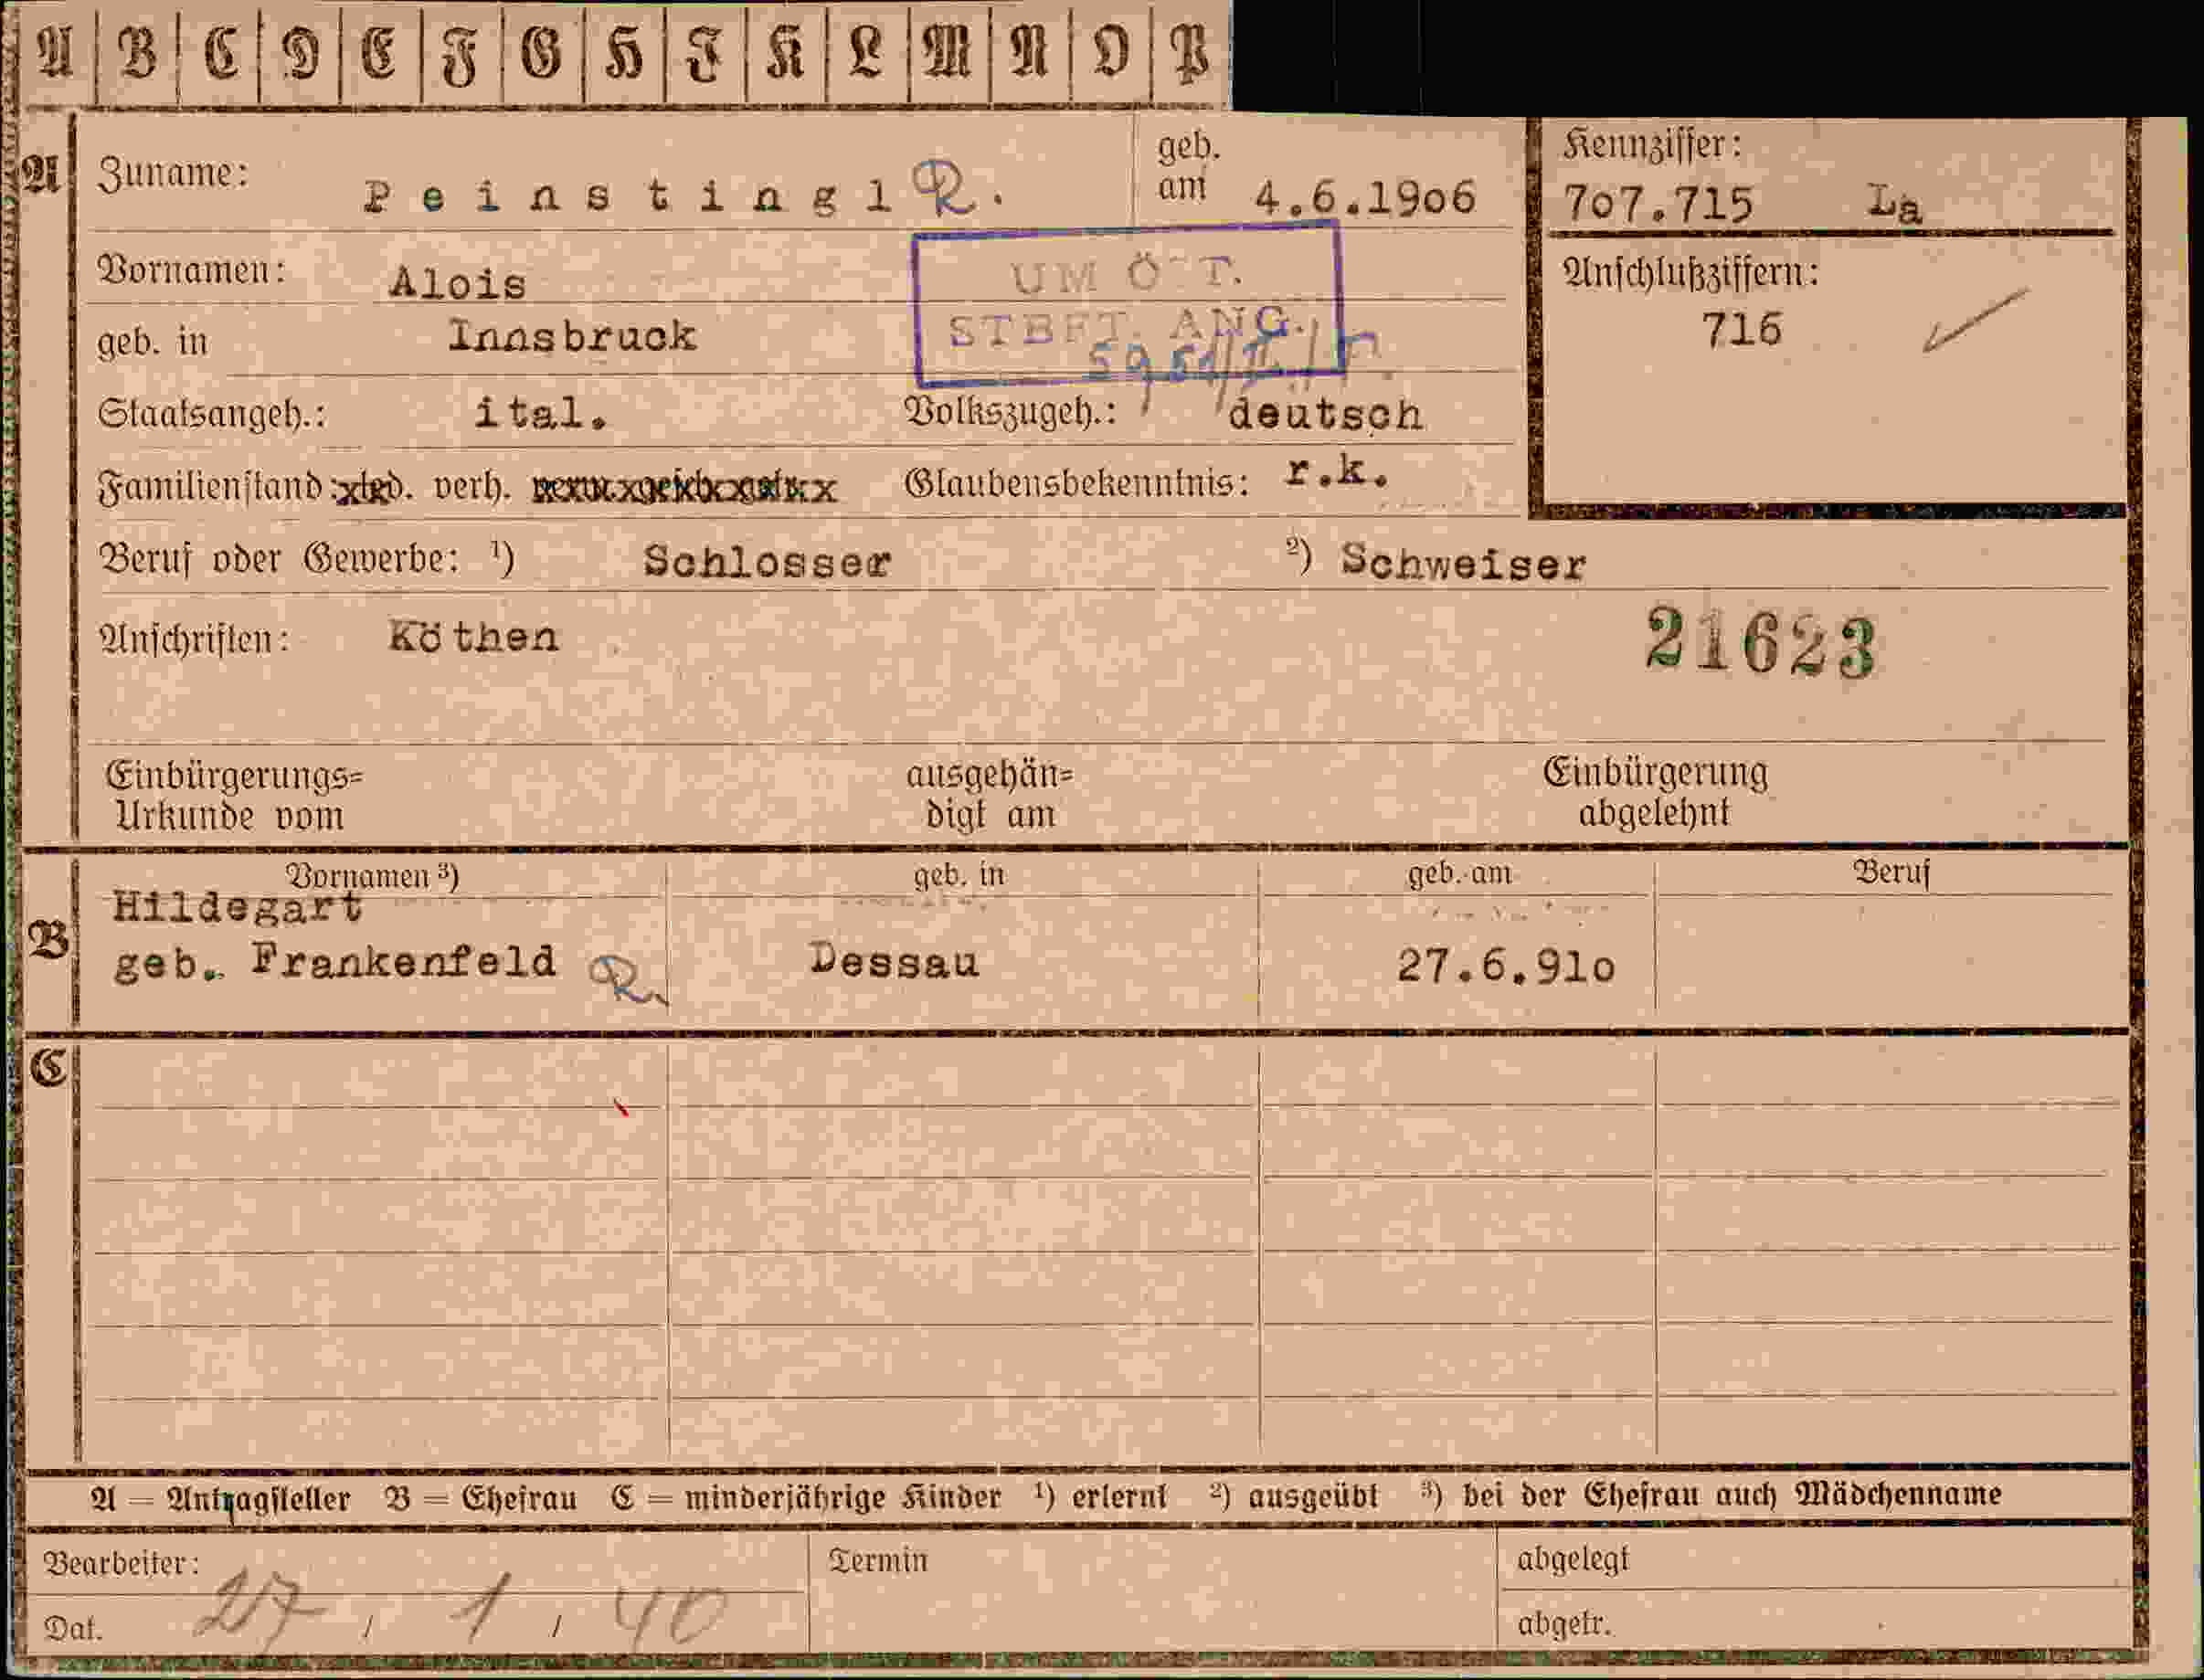 A B C D E F G H J K L M N O P
A Zuname: Peinstingl R. geb. am 4.6.1906
Kennziffer:
707.715 La
Vornamen: Alois
UM ÖT.
STBFT. ANG.
Anschlußziffern:
716
geb. in Innsbruck
Staatsangeh.: ital. Volkszugeh.: deutsch
Familienstand: led. verh. Glaubensbekenntnis: r.k.
Beruf oder Gewerbe: ¹) Schlosser ²) Schweiser
Anschriften: Köthen
21623
Einbürgerungs=
Urkunde vom
ausgehän=
digt am
Einbürgerung
abgelehnt
Vornamen ³) geb. in geb. am Beruf
B Hildegart
geb. Frankenfeld R. Dessau 27.6.910
C
A = Antragsteller B = Ehefrau C = minderjährige Kinder ¹) erlernt ²) ausgeübt ³) bei der Ehefrau auch Mädchenname
Bearbeiter: Termin abgelegt
Dat. 27 / 1 / 40 abgetr.